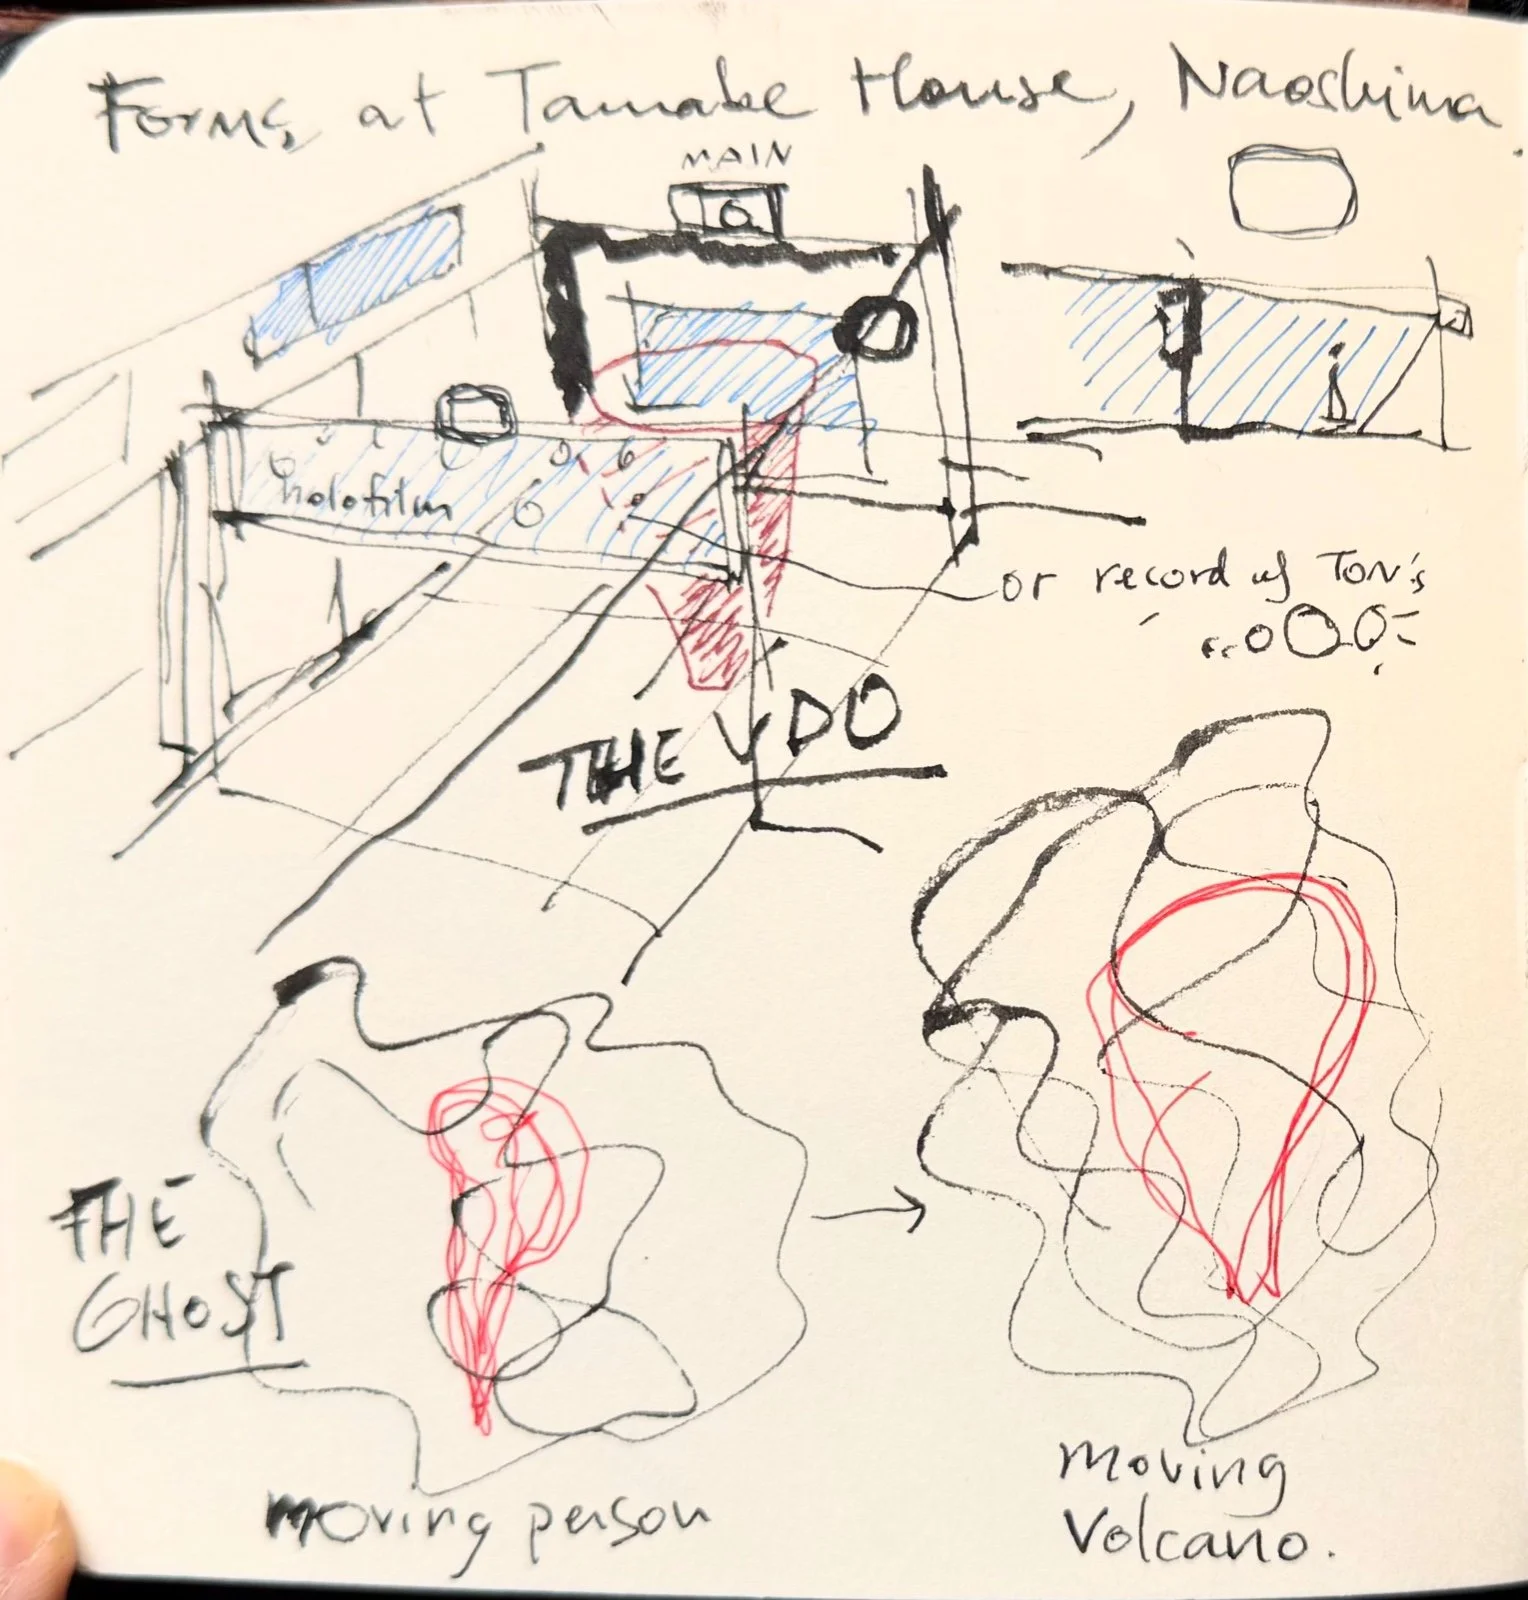 Forms at Tamabe House, Naoshima.
MAIN
holofilm
or record of TON's
THE VDO
THE
GHOST
moving person
moving
Volcano.